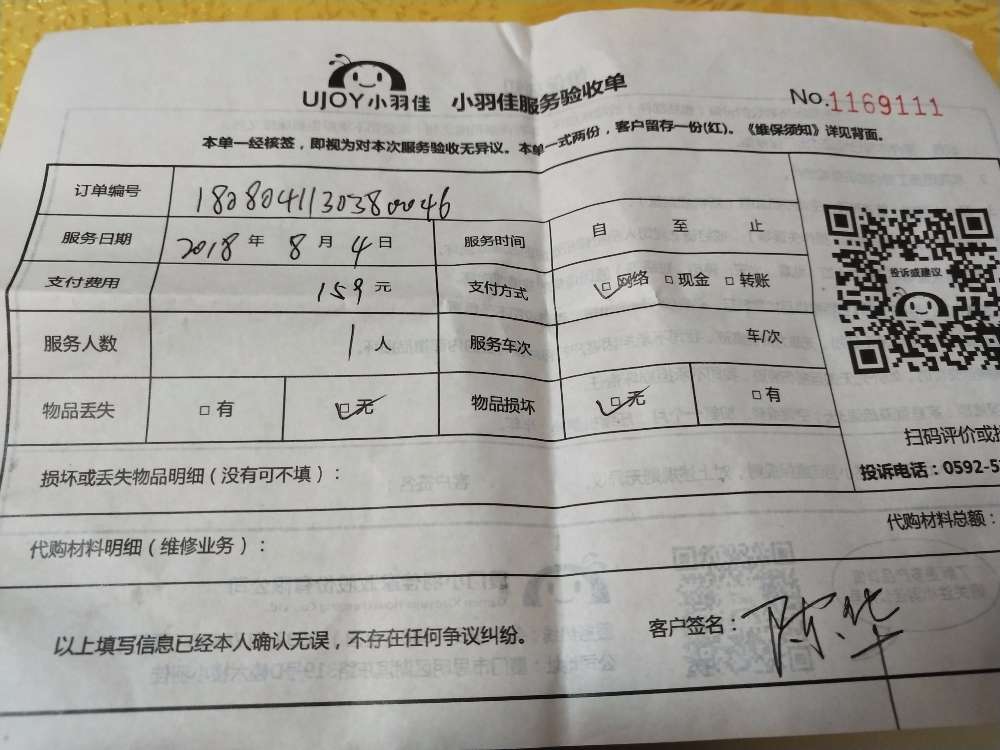 UJOY小羽佳 小羽佳服务验收单 No.1169111
本单一经核签，即视为对本次服务验收无异议。本单一式两份，客户留存一份(红)。《维保须知》详见背面。
订单编号 1808041130380046
服务日期 2018 年 8 月 4 日 服务时间 自 至 止
支付费用 159 元 支付方式 ☑网络 □现金 □转账
投诉或建议
服务人数 1 人 服务车次 车/次
物品丢失 □有 ☑无 物品损坏 ☑无 □有
扫码评价或
损坏或丢失物品明细（没有可不填）：
投诉电话：0592-5
代购材料明细（维修业务）： 代购材料总额：
以上填写信息已经本人确认无误，不存在任何争议纠纷。 客户签名：陈华